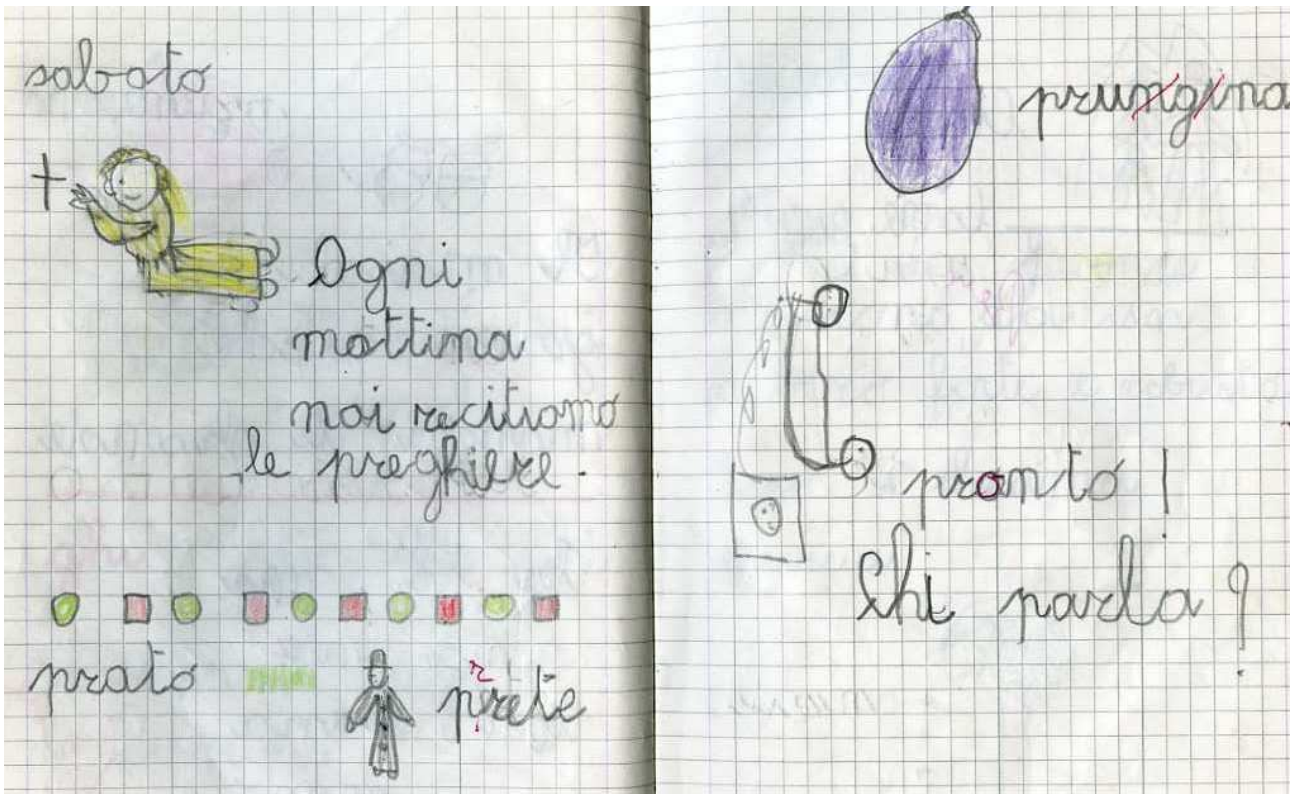 sabato
Ogni
mattina
noi recitiamo
le preghiere.
prato prete
prungina
pronto!
Chi parla?